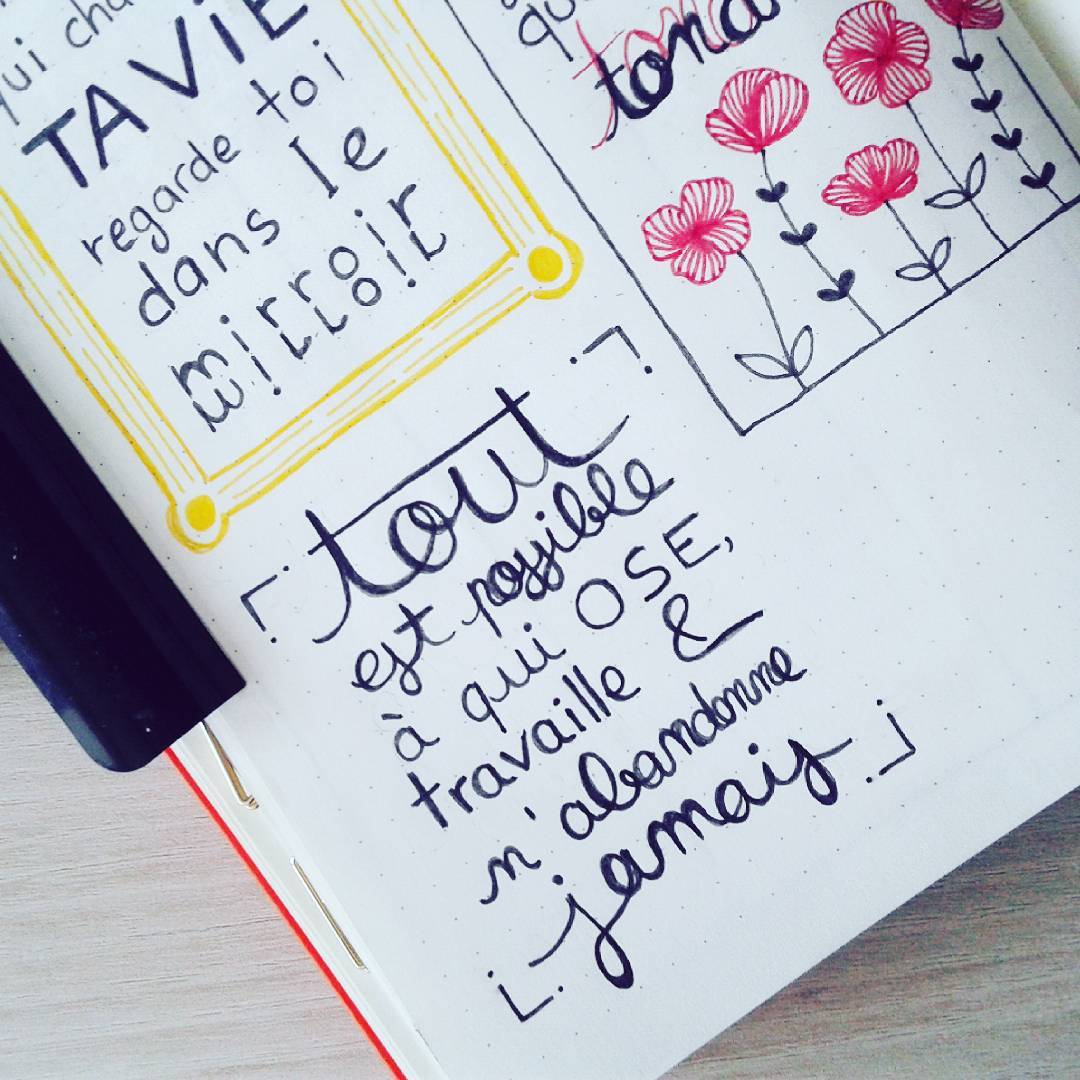 qui cha
TA ViE
regarde toi
dans le
mirroir
tout
est possible
à qui OSE,
travaille &
n'abandonne
jamais